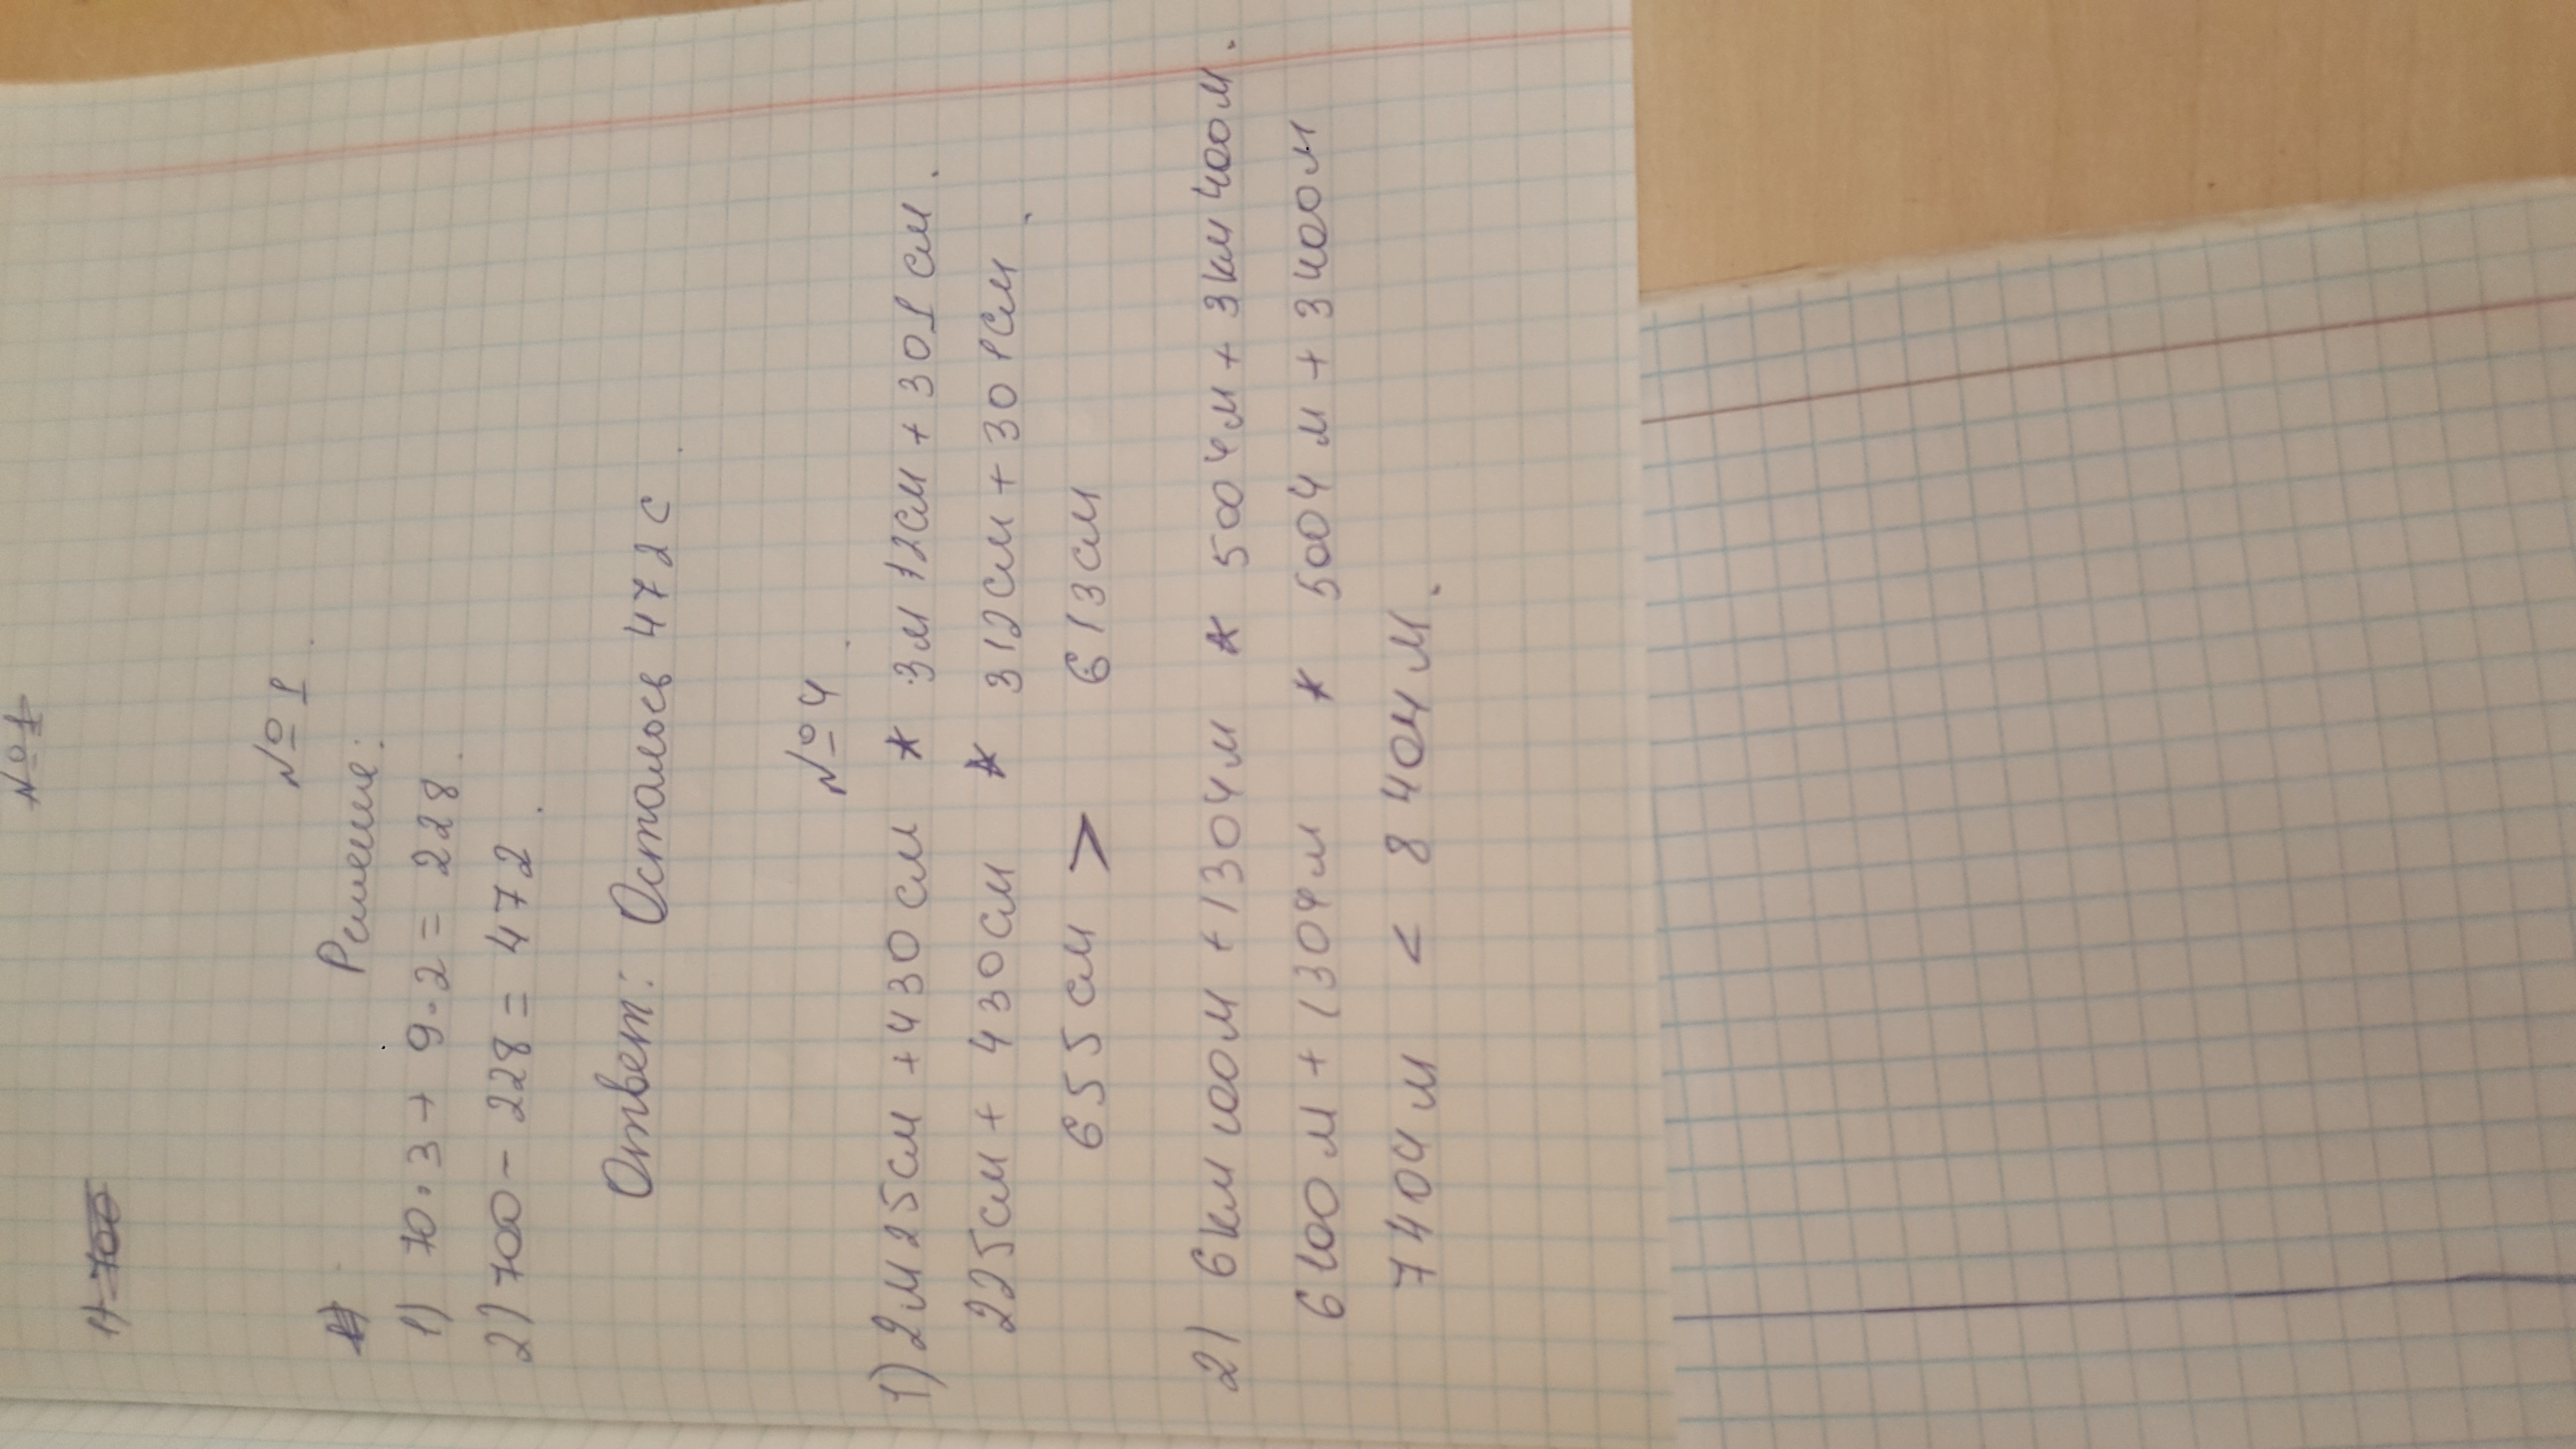 № 1
1) 700
№ 1.
Решение:
1) 70·3 + 9·2 = 228.
2) 700 - 228 = 472.
Ответ: Осталось 472 с.
№ 4.
1) 2м 25см + 430 см * 3м 12см + 301 см.
225см + 430см * 312см + 301см.
655 см > 613см
2) 6км 100м + 1304м * 5004м + 3км 400м.
6100 м + 1304м * 5004 м + 3400м
7404 м < 8404м.